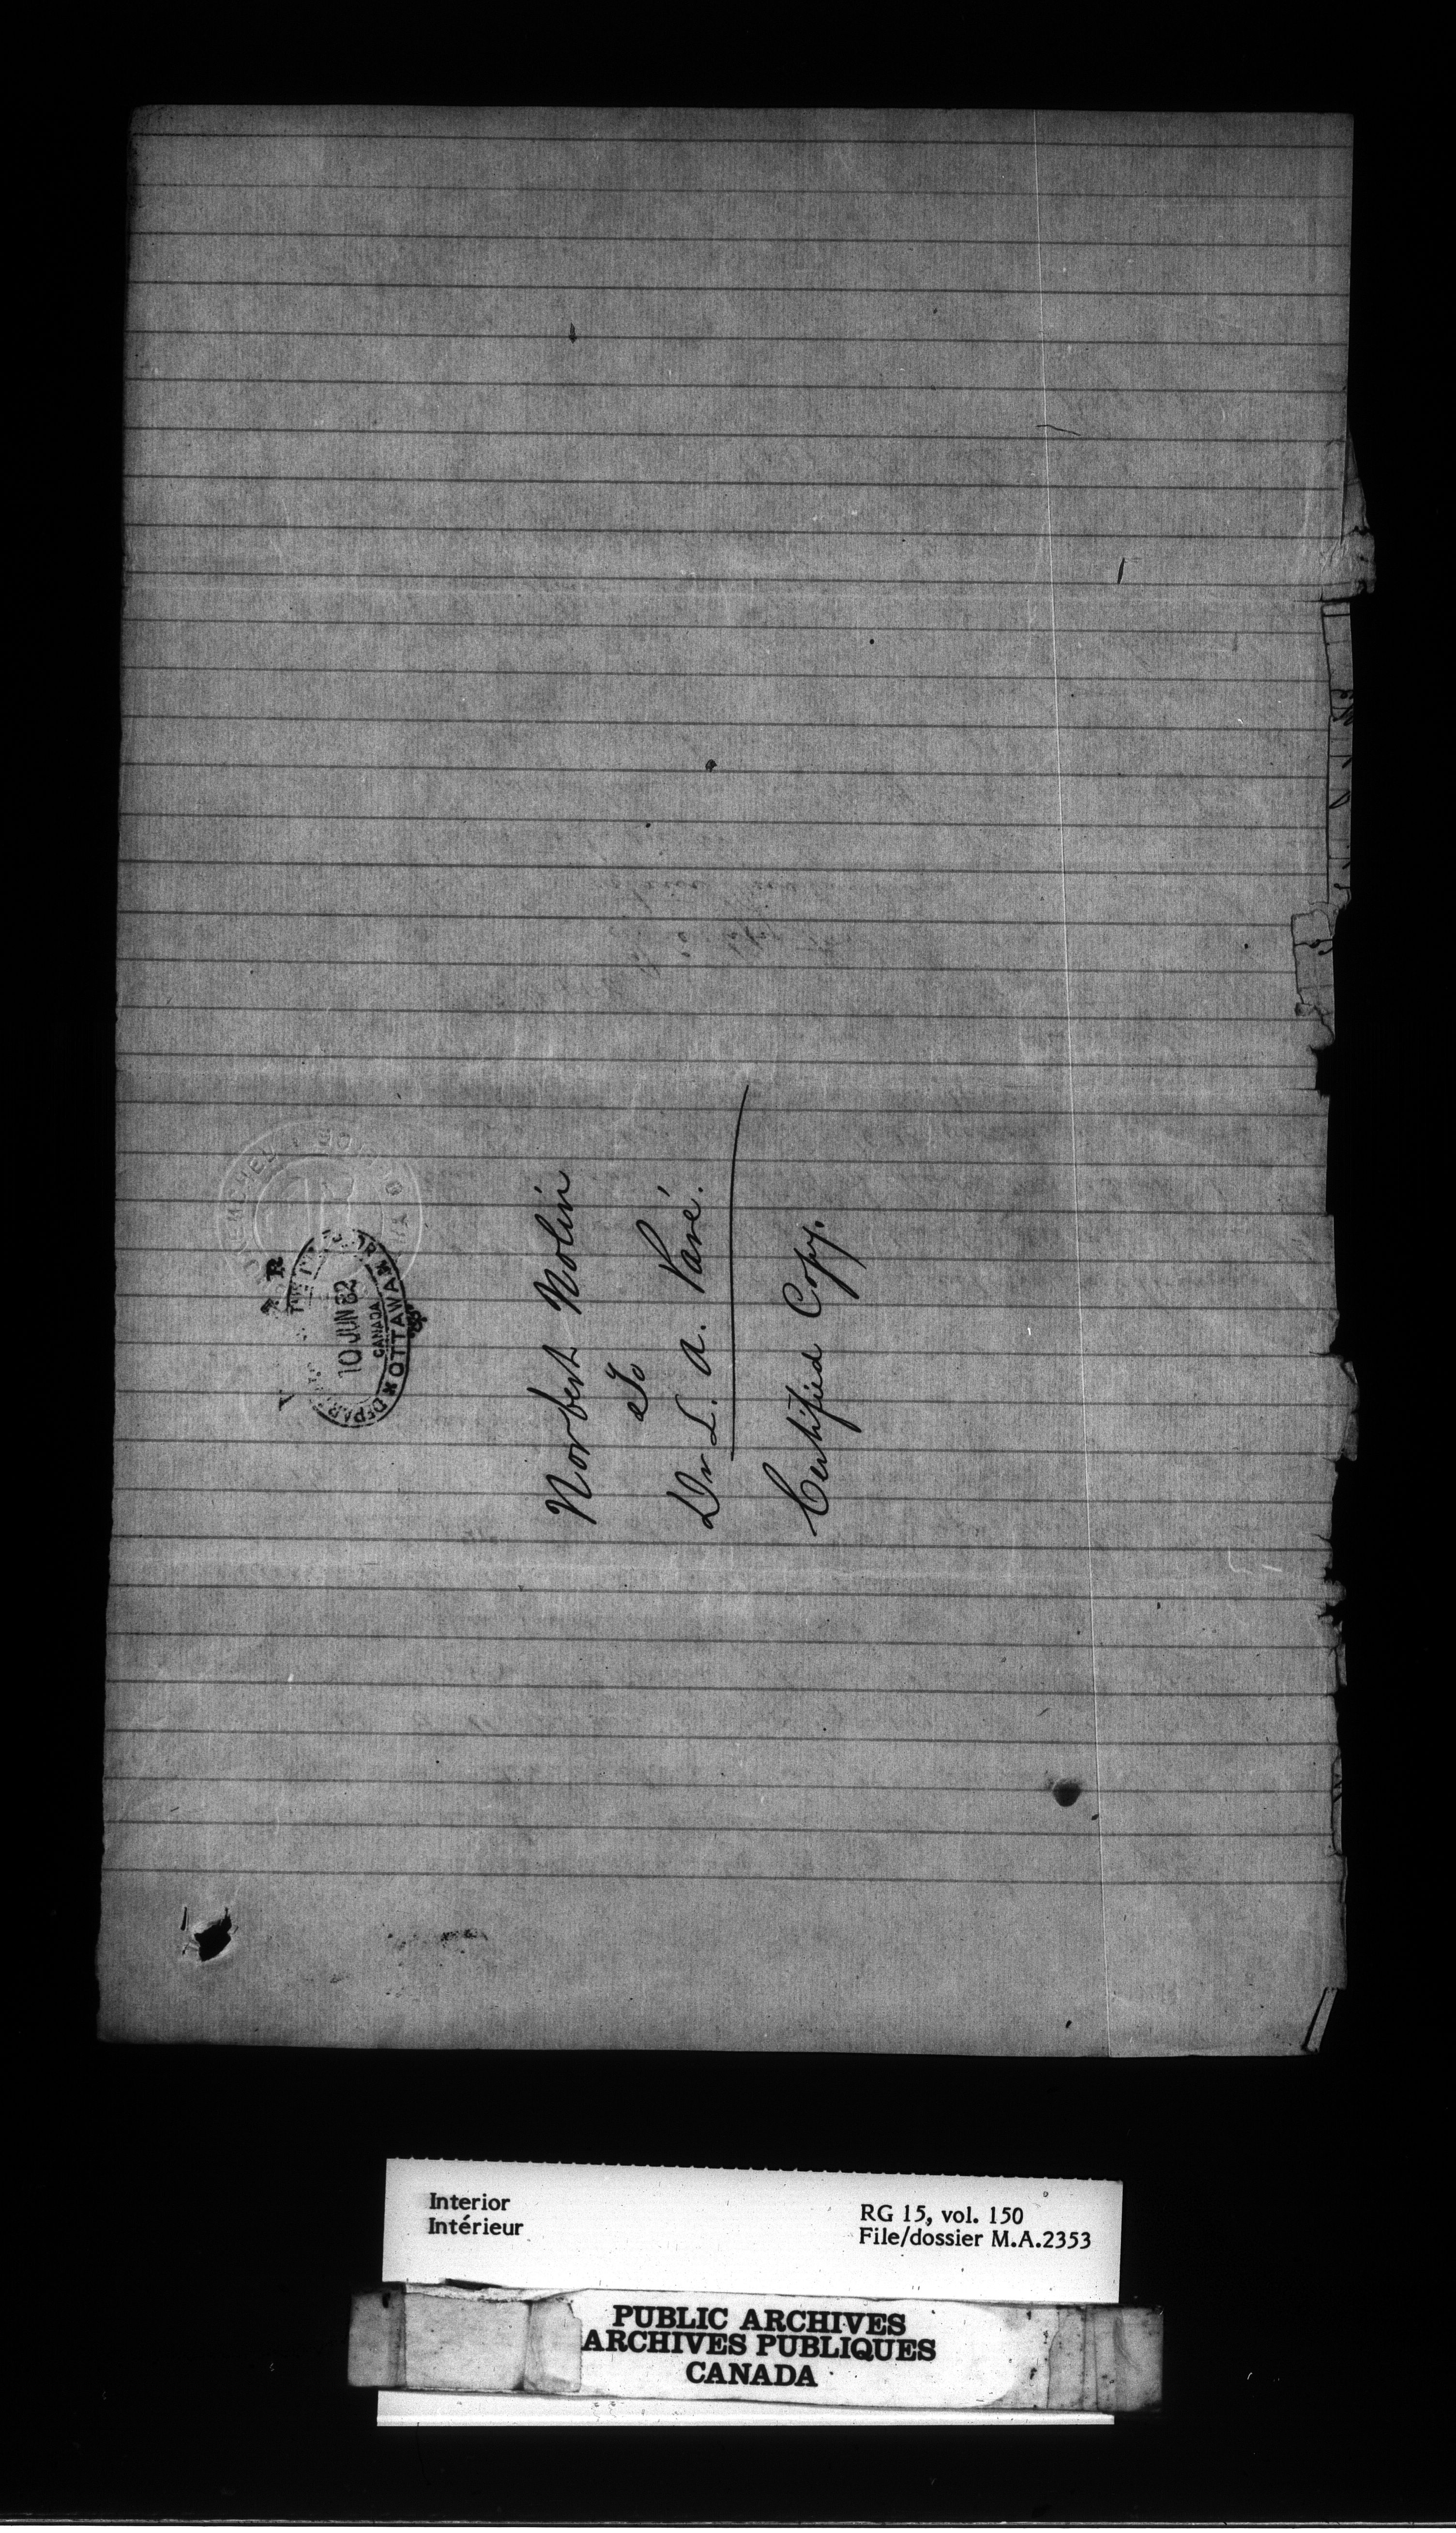 Norbert Nolin
To
Dr L. A. Paré.
Certified Copy.
THE INTERIOR
10 JUN 82
CANADA
OTTAWA
Interior
Intérieur
RG 15, vol. 150
File/dossier M.A.2353
PUBLIC ARCHIVES
ARCHIVES PUBLIQUES
CANADA